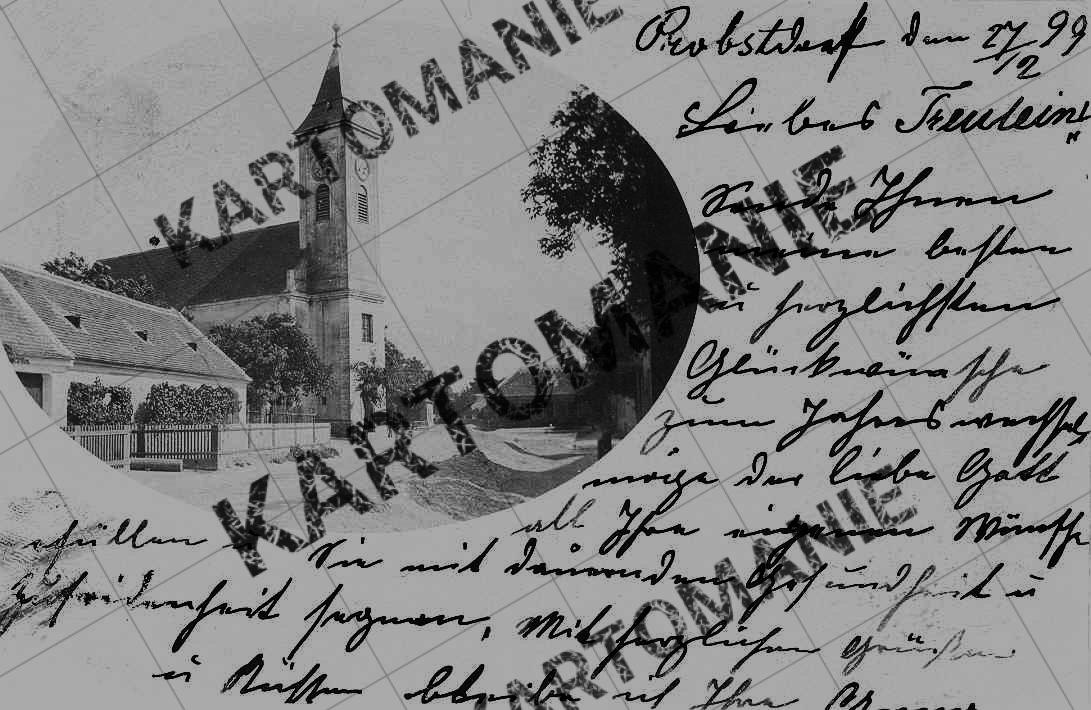 Probstdorf den 27/12 99
Liebes Freulein!
Sende Ihnen
meine besten
u herzlichsten
Glückwünsche
zum Jahreswechsel
möge der liebe Gott
all Ihre eigenen Wünsche
erfüllen u Sie mit dauernden Gesundheit u
Zufridenheit segnen, Mit herzlichen Grüßen
u Küssen bleibe ich Ihre
KARTOMANIE
KARTOMANIE
KARTOMANIE